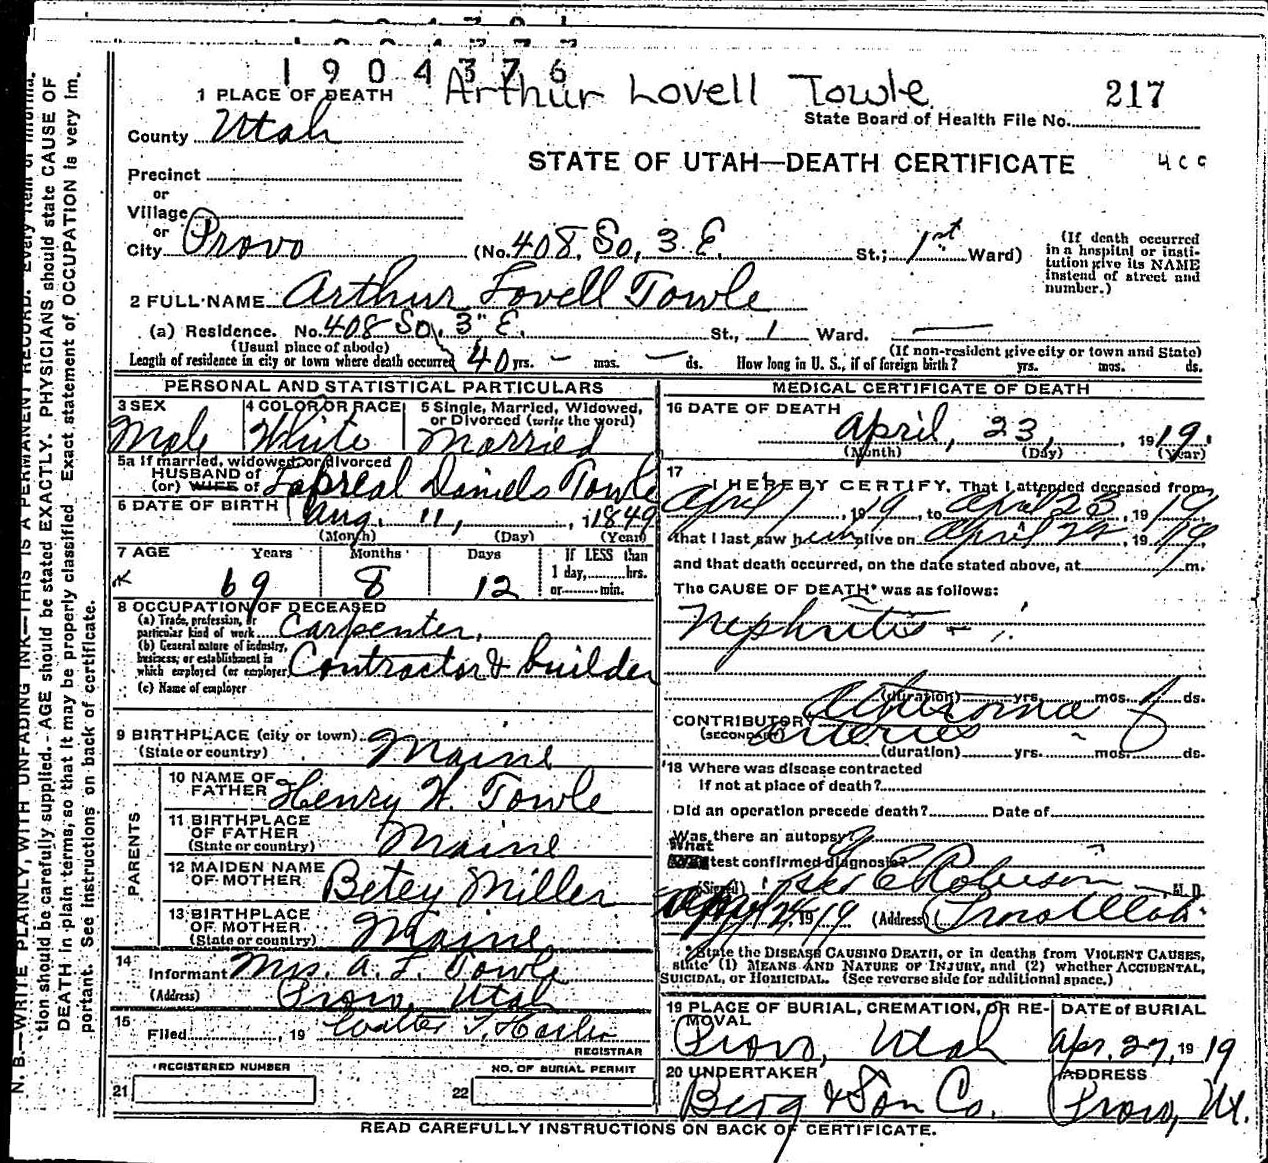 1904376
Arthur Lovell Towle
217
1 PLACE OF DEATH
State Board of Health File No.
County Utah
STATE OF UTAH—DEATH CERTIFICATE
Precinct
or
Village
or
City Provo (No. 408 So, 3 E. St.; 1st Ward)
(If death occurred in a hospital or institution give its NAME instead of street and number.)
2 FULL NAME Arthur Lovell Towle
(a) Residence. No. 408 So, 3" E. St., 1 Ward.
(Usual place of abode) (If non-resident give city or town and State)
Length of residence in city or town where death occurred 40 yrs. – mos. – ds. How long in U. S., if of foreign birth? yrs. mos. ds.
PERSONAL AND STATISTICAL PARTICULARS
3 SEX 4 COLOR OR RACE 5 Single, Married, Widowed, or Divorced (write the word)
Male White Married
5a If married, widowed, or divorced
HUSBAND of
(or) WIFE of Daniels Towle
6 DATE OF BIRTH Aug. 11, 1849
(Month) (Day) (Year)
7 AGE Years Months Days If LESS than 1 day,......hrs. or......min.
69 8 12
8 OCCUPATION OF DECEASED
(a) Trade, profession, or particular kind of work Carpenter,
(b) General nature of industry, business, or establishment in which employed (or employer) Contractor & builder
(c) Name of employer
9 BIRTHPLACE (city or town) Maine
(State or country)
PARENTS
10 NAME OF FATHER Henry W. Towle
11 BIRTHPLACE OF FATHER (State or country) Maine
12 MAIDEN NAME OF MOTHER Betsy Miller
13 BIRTHPLACE OF MOTHER (State or country) Maine
14 Informant Mrs. A. L. Towle
(Address) Provo, Utah
15 Filed , 19 Walter T. Hasler
REGISTRAR
REGISTERED NUMBER NO. OF BURIAL PERMIT
21 22
MEDICAL CERTIFICATE OF DEATH
16 DATE OF DEATH
April, 23, 1919.
(Month) (Day) (Year)
17 I HEREBY CERTIFY, That I attended deceased from
April 1, 1919, to April 23, 1919
that I last saw him alive on April 22, 1919,
and that death occurred, on the date stated above, at m.
The CAUSE OF DEATH* was as follows:
Nephritis
(duration) yrs. mos. ds.
CONTRIBUTORY Atheroma of
(SECONDARY) arteries
(duration) yrs. mos. ds.
18 Where was disease contracted
If not at place of death?
Did an operation precede death? Date of
Was there an autopsy?
What test confirmed diagnosis?
(Signed) Robison M. D.
Apr 24, 1919 (Address) Provo Utah
*State the DISEASE CAUSING DEATH, or in deaths from VIOLENT CAUSES,
state (1) MEANS AND NATURE OF INJURY, and (2) whether ACCIDENTAL,
SUICIDAL, or HOMICIDAL. (See reverse side for additional space.)
19 PLACE OF BURIAL, CREMATION, OR REMOVAL DATE of BURIAL
Provo, Utah Apr. 27, 1919
20 UNDERTAKER ADDRESS
Berg & Son Co. Provo, Ut.
READ CAREFULLY INSTRUCTIONS ON BACK OF CERTIFICATE.
N. B.—WRITE PLAINLY, WITH UNFADING INK—THIS IS A PERMANENT RECORD. Every item of informa-
tion should be carefully supplied. AGE should be stated EXACTLY. PHYSICIANS should state CAUSE OF
DEATH in plain terms, so that it may be properly classified. Exact statement of OCCUPATION is very im-
portant. See instructions on back of certificate.